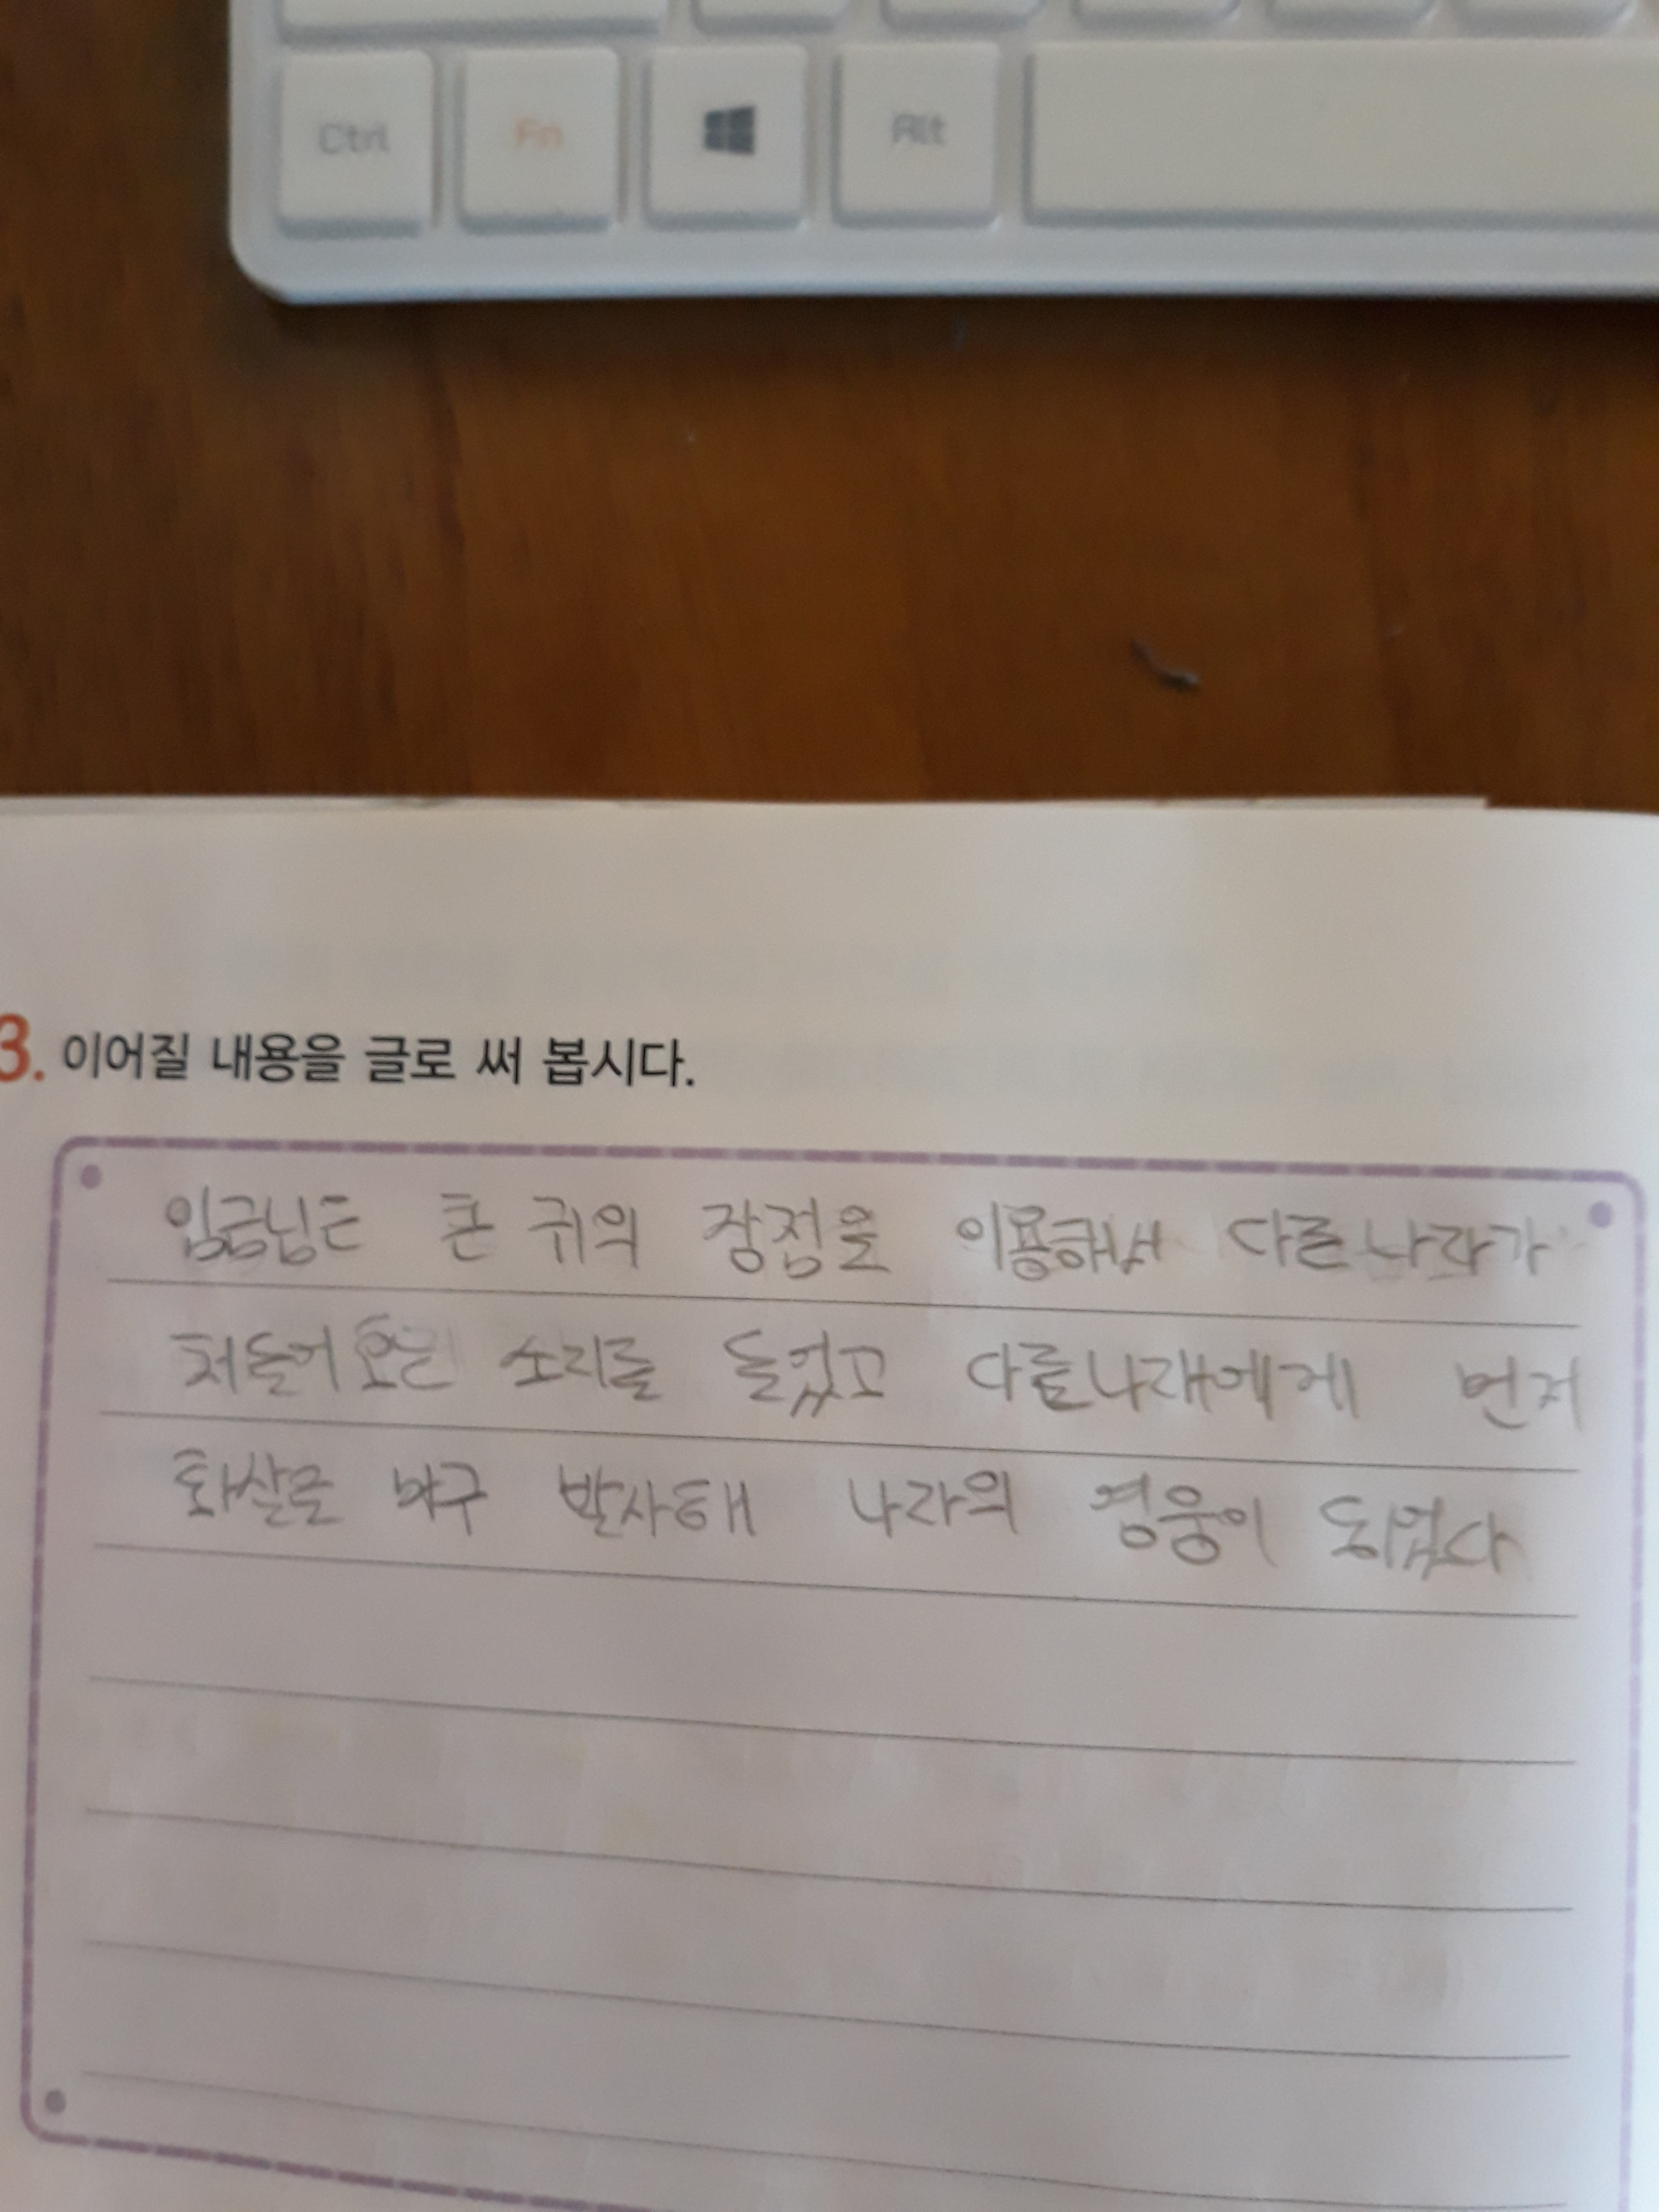 Ctrl Fn Alt
3. 이어질 내용을 글로 써 봅시다.
임금님은 큰 귀의 장점을 이용해서 다른나라가
처들어오는 소리를 들었고 다른나라에게 먼저
화살을 마구 발사해 나라의 영웅이 되었다